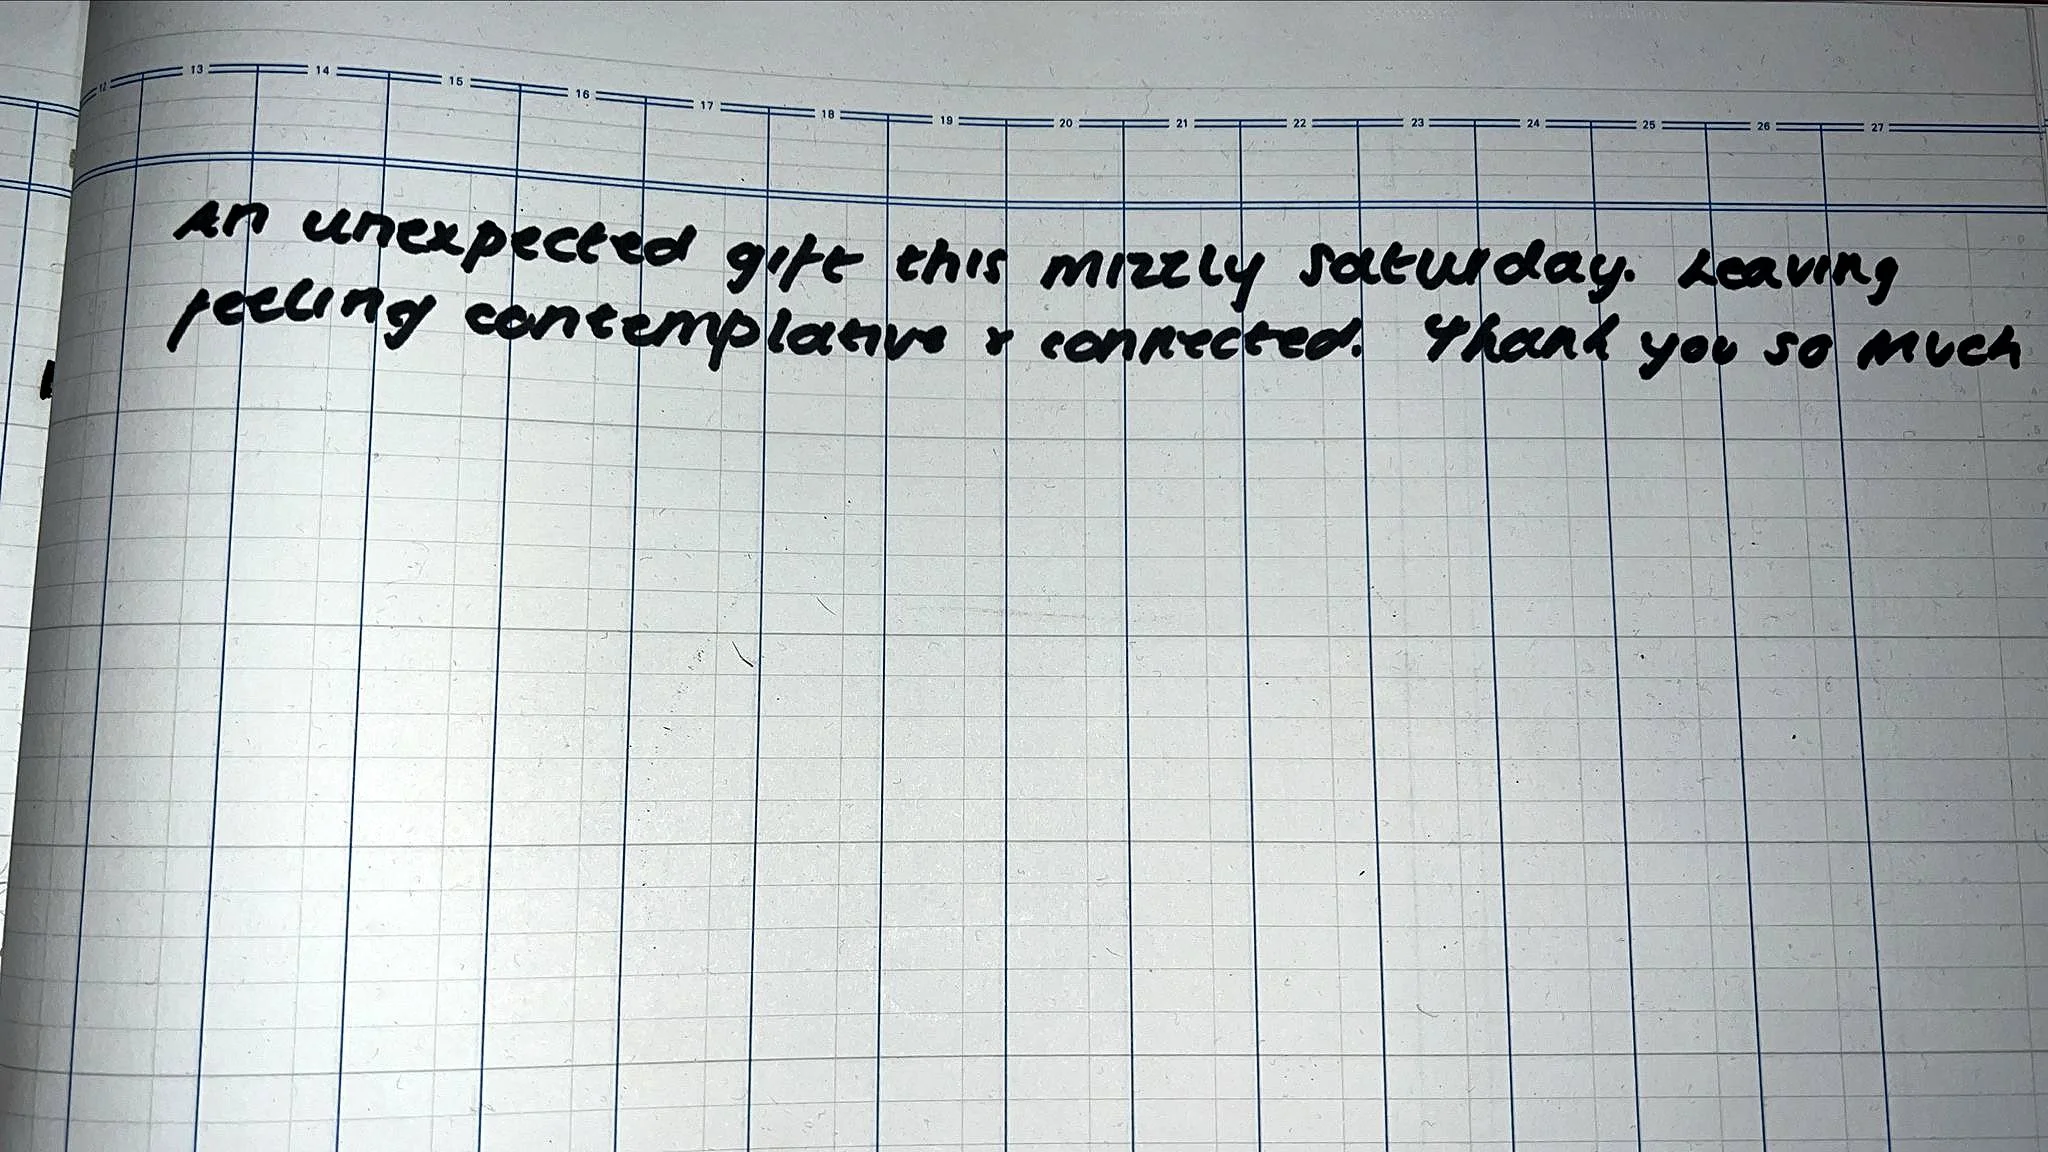 12 13 14 15 16 17 18 19 20 21 22 23 24 25 26 27
An unexpected gift this mizzly Saturday. Leaving
feeling contemplative & connected. Thank you so much